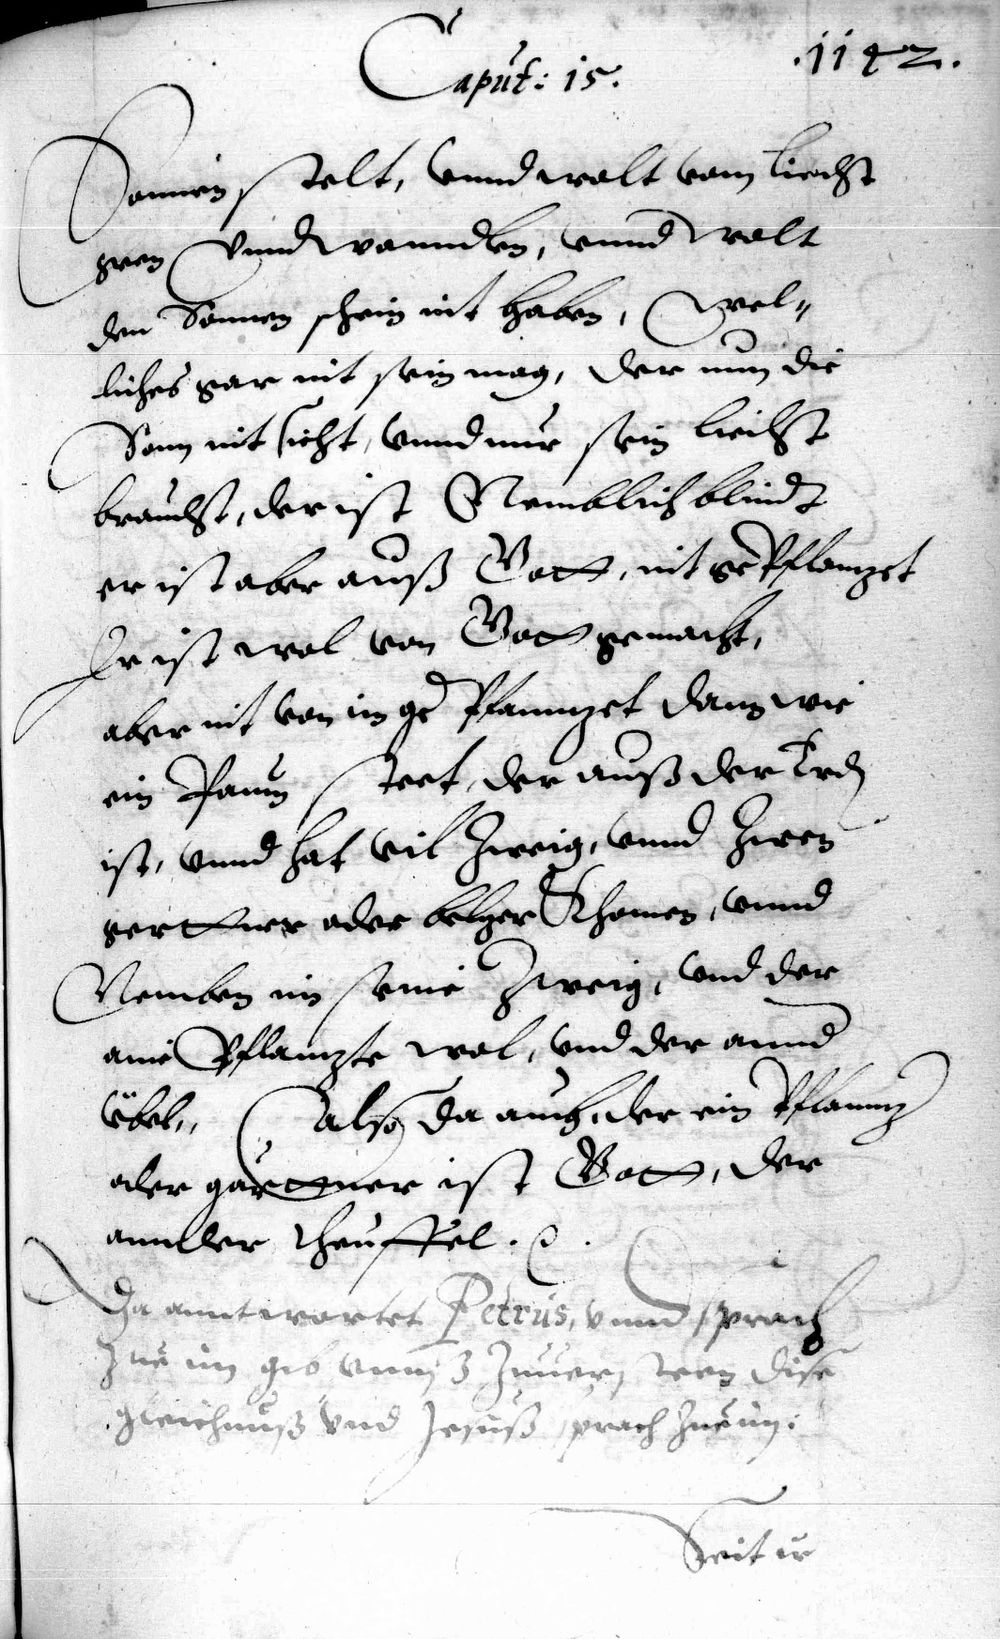 Caput: 15.
.1142.
Sonnen stelt, vnnd wolt vom liecht
gen vnnd wanndlen, vnnd wolt
den Sonnen schein nit haben, Wel„
liches gar nit sein mag, der nun die
Sonn nit sicht, vnnd nur sein liecht
braucht, der ist Nemblich blindt
er ist aber auß Gott, nit gePflanzet
Er ist wol von Gott gemacht,
aber nit von im ge Pflannzet dann wie
ein Paum steet, der auß der Erd
ist, vnnd hat vil Zweig, vnnd Zwen
gerttner oder Khomen, vnnd
Nemben im seine Zweig, vnd der
aine Pflanzte wol, vnd der annd
übel,, also da auch, der ein Pflannz
oder gärttner ist Gott, der
annder Theuffel.
Da anntwortet Petrus, vnnd sprach
Zue im gib vnns Zuuersteen dise
gleichnuß vnd Jesuß sprach Zue im:
Seit ir